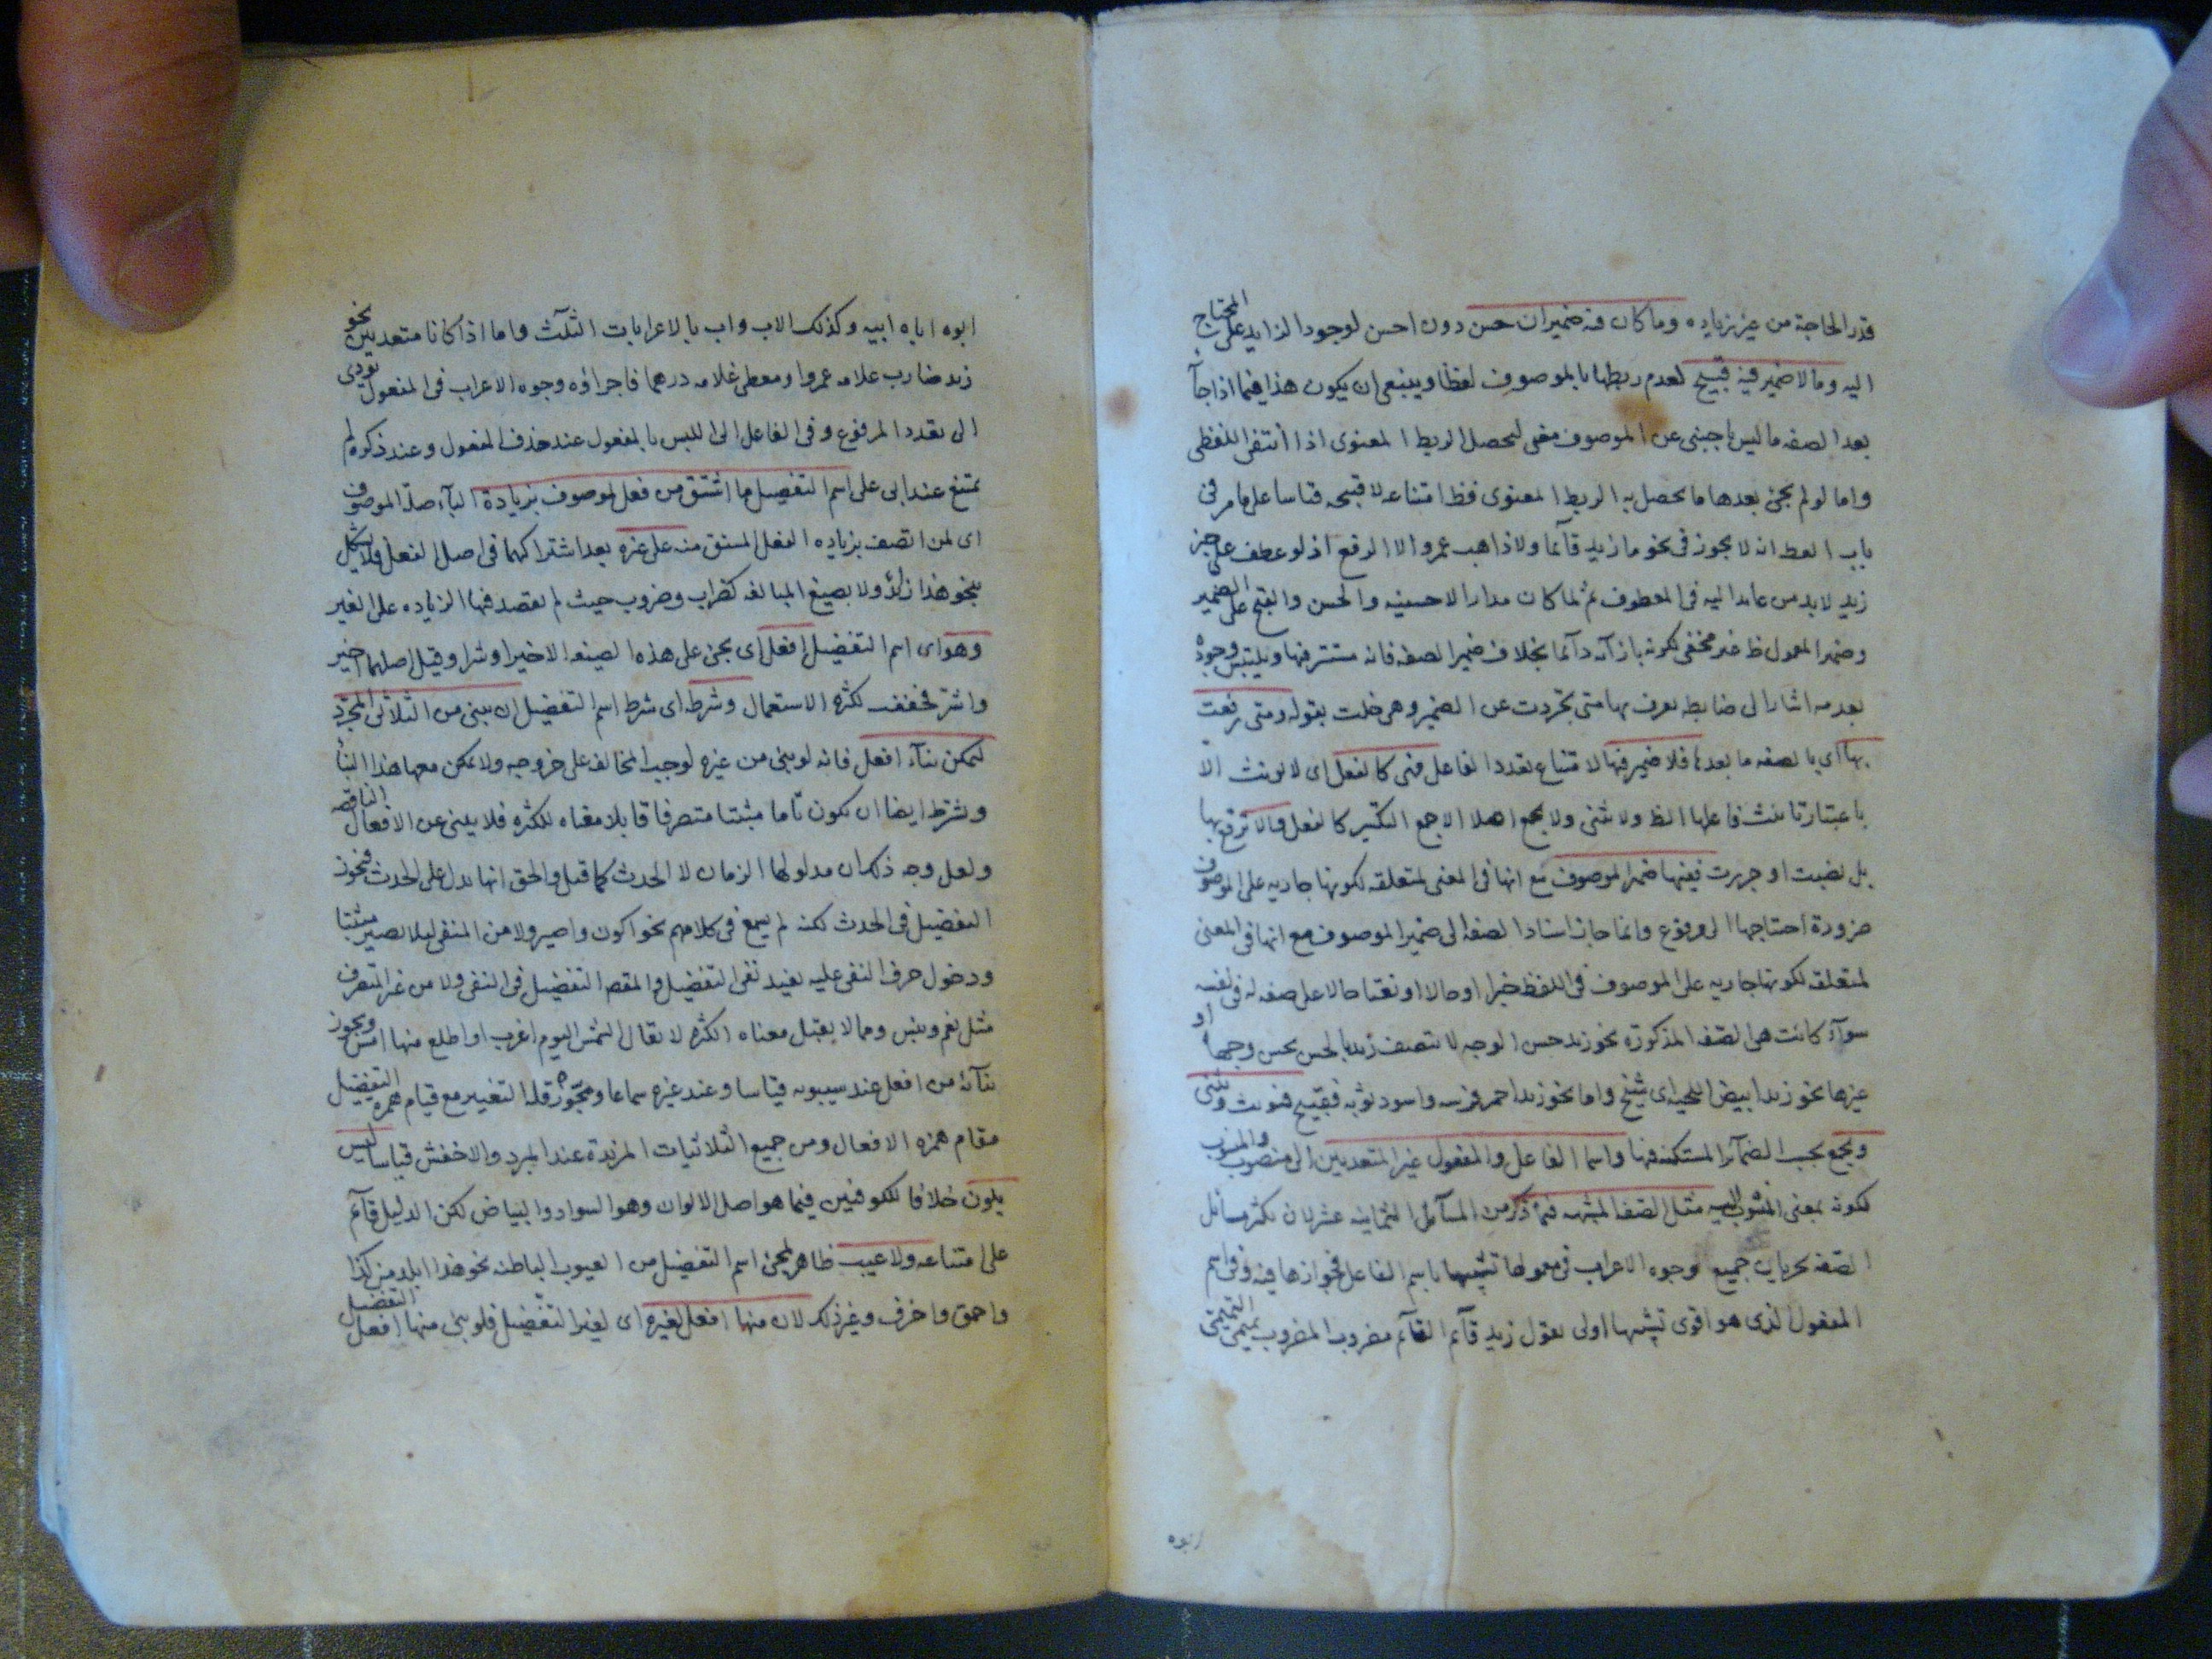 قدر الحاجة من غير زياده وما كان فيه ضميران حسن دون احسن لوجود الزايد على المحتاج
اليه وما لا ضمير فيه قبيح لعدم ربطها بالموصوف لفظا وينبغى ان يكون هذا فيما اذا جآ
بعد الصفه ما ليس باجنبى عن الموصوف معنى ليحصل الربط المعنوى اذا أنتفى اللفظى
واما لو لم يجئ بعدها ما يحصل به الربط المعنوى فظ امتناعه لا قبحه قياسا على ما مر فى
باب العط انه لا يجوز فى نحو ما زيد قآئما ولا ذاهب عمرو الا الرفع اذ لو عطف على خبر
زيد لا بد من عائد اليه فى المعطوف ثم لما كان مدار الاحسنيه والحسن والقبح على الضمير
وضمير المعمول ظ غير مخفى لكونه بارزا دآئما بخلاف ضمير الصفه فانه مستتر فيها ويلتبس وجوده
بعدمه اشار الى ضابطه يعرف بها متى تجردت عن الضمير وهى خلت بقوله ومتى رفعت
بها اى بالصفه ما بعدها فلا ضمير فيها لامتناع تعدد الفاعل فهى كالفعل اى لا تونث الا
باعتبار تانيث فاعلها الظ ولا تثنى ولا تجمع اصلا الا جمع التكسير كالفعل والا ترفع بها
بل نصبت او جررت ففيها ضمير الموصوف مع انها فى المعنى لمتعلقه لكونها جاريه على الموصوف
ضرورة احتاجها الى مرفوع وانما جاز اسناد الصفه الى ضمير الموصوف مع انها فى المعنى
لمتعلقه لكونها جاريه على الموصوف فى اللفظ خبرا او حالا او نعتا حالا على صفه له فى نفسه
سوآء كانت هى الصفه المذكوره نحو زيد حسن الوجه لا تتصف زيد بالحسن بحسن وجهه او
غيرها نحو زيد ابيض اللحيه اى شيخ واما نحو زيد احمر فرسه واسود ثوبه فقبيح فتونث وتثنى
وتجمع بحسب الضمآئر المستكنه فيها واسما الفاعل والمفعول غير المتعديين الى منصوب والمنسوب
لكونه بمعنى المنسوب اليه مثل الصفه المشبهه فيما ذكر من المسآئل الثمانيه عشر لان
الصفه جريان جميع وجوه الاعراب فى معمولها تشبيها باسم الفاعل فجوازها فيه وفى اسم
المفعول الذى هو اقوى تشبها اولى تقول زيد قآئم القآئم مضروب المضروب تميمى التميمى
ابوه
ابوه اباه ابيه وكذلك الاب واب بالاعرابات الثلث واما اذا كانا متعديين نحو
زيد ضارب غلامه عمروا ومعطى غلامه درهما فاجراؤه وجوه الاعراب فى المفعول تودى
الى تعدد المرفوع وفى الفاعل الى اللبس بالمفعول عند حذف المفعول وعند ذكره لم
يمتنع عند ابى على اسم التفضيل ما اشتق من فعل لموصوف بزيادة البآء صلة الموصوف
اى لمن اتصف بزياده الفعل المشتق منه على غيره بعد اشتراكهما فى اصل الفعل ولا يشكل
بنحو هذا زائد ولا بصيغ المبالغه كضراب وضروب حيث لم يقصد فيها الزياده على الغير
وهو اى اسم التفضيل افعل اى يجئ على هذه الصيغه الا خيرا وشرا وقيل اصلهما اخير
واشرّ فخفف لكثره الاستعمال وشرطه اى شرط اسم التفضيل ان يبنى من الثلاثى المجرّد
ليمكن بنآء افعل فانه لو بنى من غيره لوجب المخالفه على حروفه ولا يمكن معها هذا البنآ
وشرط ايضا ان يكون تاما مثبتا متصرفا قابلا معناه للكثره فلا يبنى عن الافعال الناقصه
ولعل وجه ذلك ان مدلولها الزمان لا الحدث كما قيل والحق انها تدل على الحدث فيجوز
التفضيل فى الحدث لكنه لم يسمع فى كلامهم نحو اكون واصير ولا من المنفى ليلا يصير مثبتا
ودخول حرف النفى عليه يفيد نفى التفضيل والمقص التفضيل فى النفى ولا من غير المتصرف
مثل نعم وبئس وما لا يقبل معناه الكثره لا يقال الشمس اليوم اغرب او اطلع منها امس ويجوز
بنآئه من افعل عند سيبويه قياسا وعند غيره سماعا ومجوّزه قله التغيير مع قيام همزه التفضيل
مقام همزه الافعال ومن جميع الثلاثيات المزيدة عند المبرد والاخفش قياسا ليس
بلون خلافا للكوفيين فيما هو اصل الالوان وهو السواد والبياض لكن الدليل قآئم
على امتناعه ولا عيب ظاهر لمجئ اسم التفضيل من العيوب الباطنه نحو هذا ابلد من كذا
واحمق واخرف وغير ذلك لان منها افعل لغيره اى لغير التفضيل فلو بنى منها افعل التفضيل